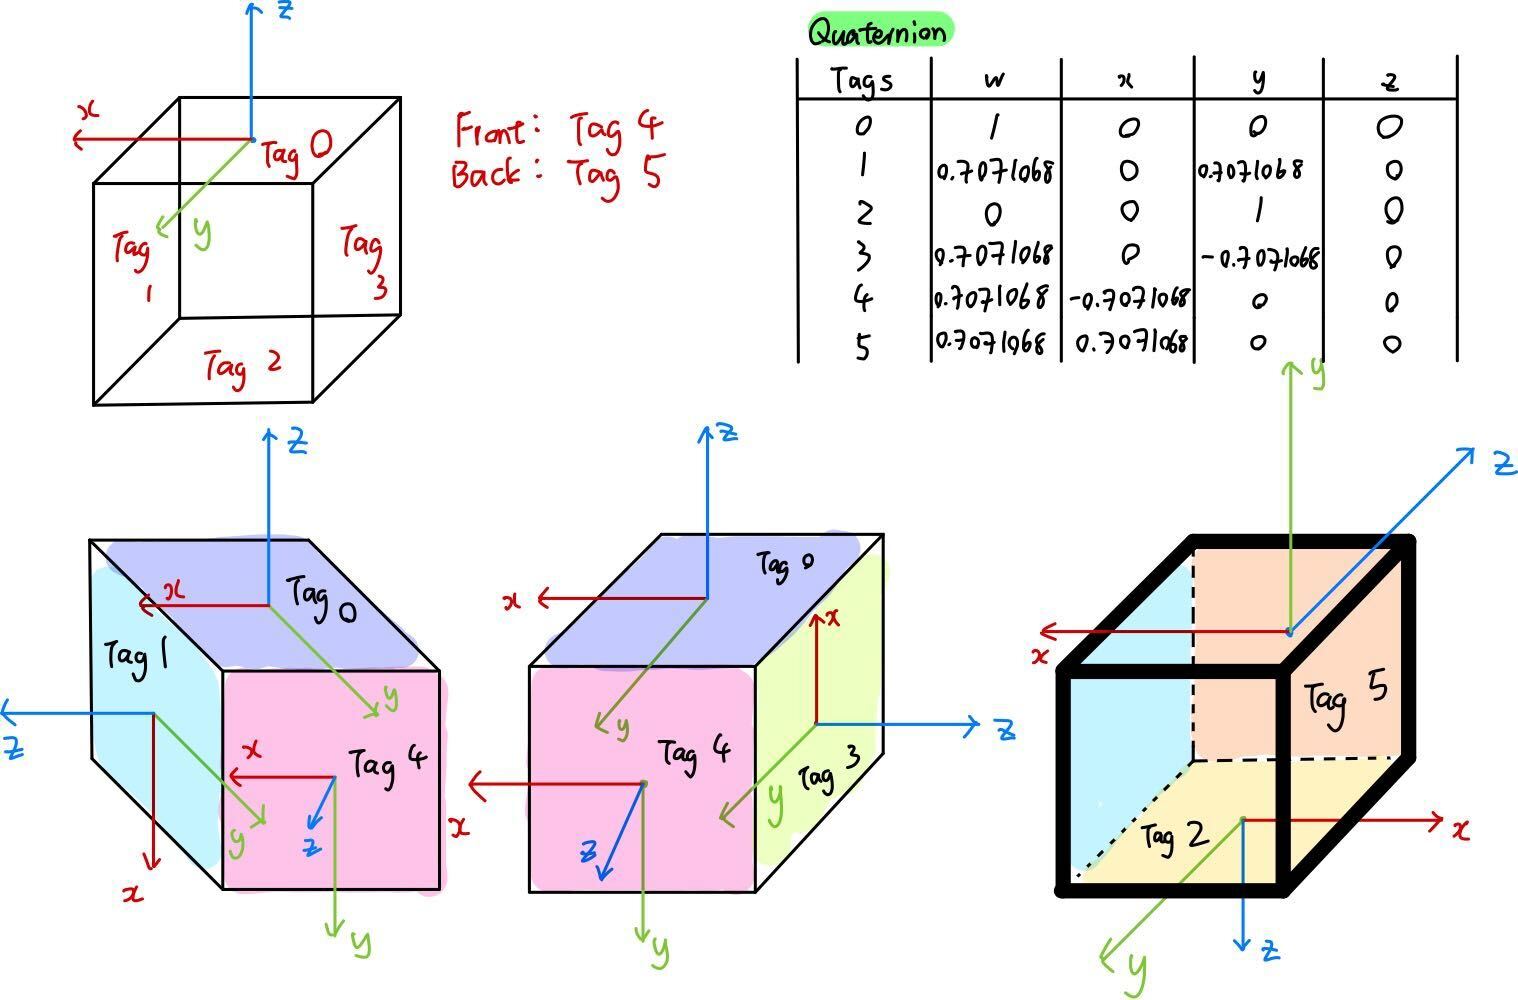 z
x
Tag 0
y
Tag 1
Tag 3
Tag 2
Front : Tag 4
Back : Tag 5
Quaternion
Tags w x y z
0 1 0 0 0
1 0.7071068 0 0.7071068 0
2 0 0 1 0
3 0.7071068 0 -0.7071068 0
4 0.7071068 -0.7071068 0 0
5 0.7071068 0.7071068 0 0
z
x
Tag 0
Tag 1
y
z
x
Tag 4
y
z
x
y
z
Tag 0
x
x
y
Tag 4
z
Tag 3
y
x
z
y
y
z
x
Tag 5
Tag 2
x
y
z